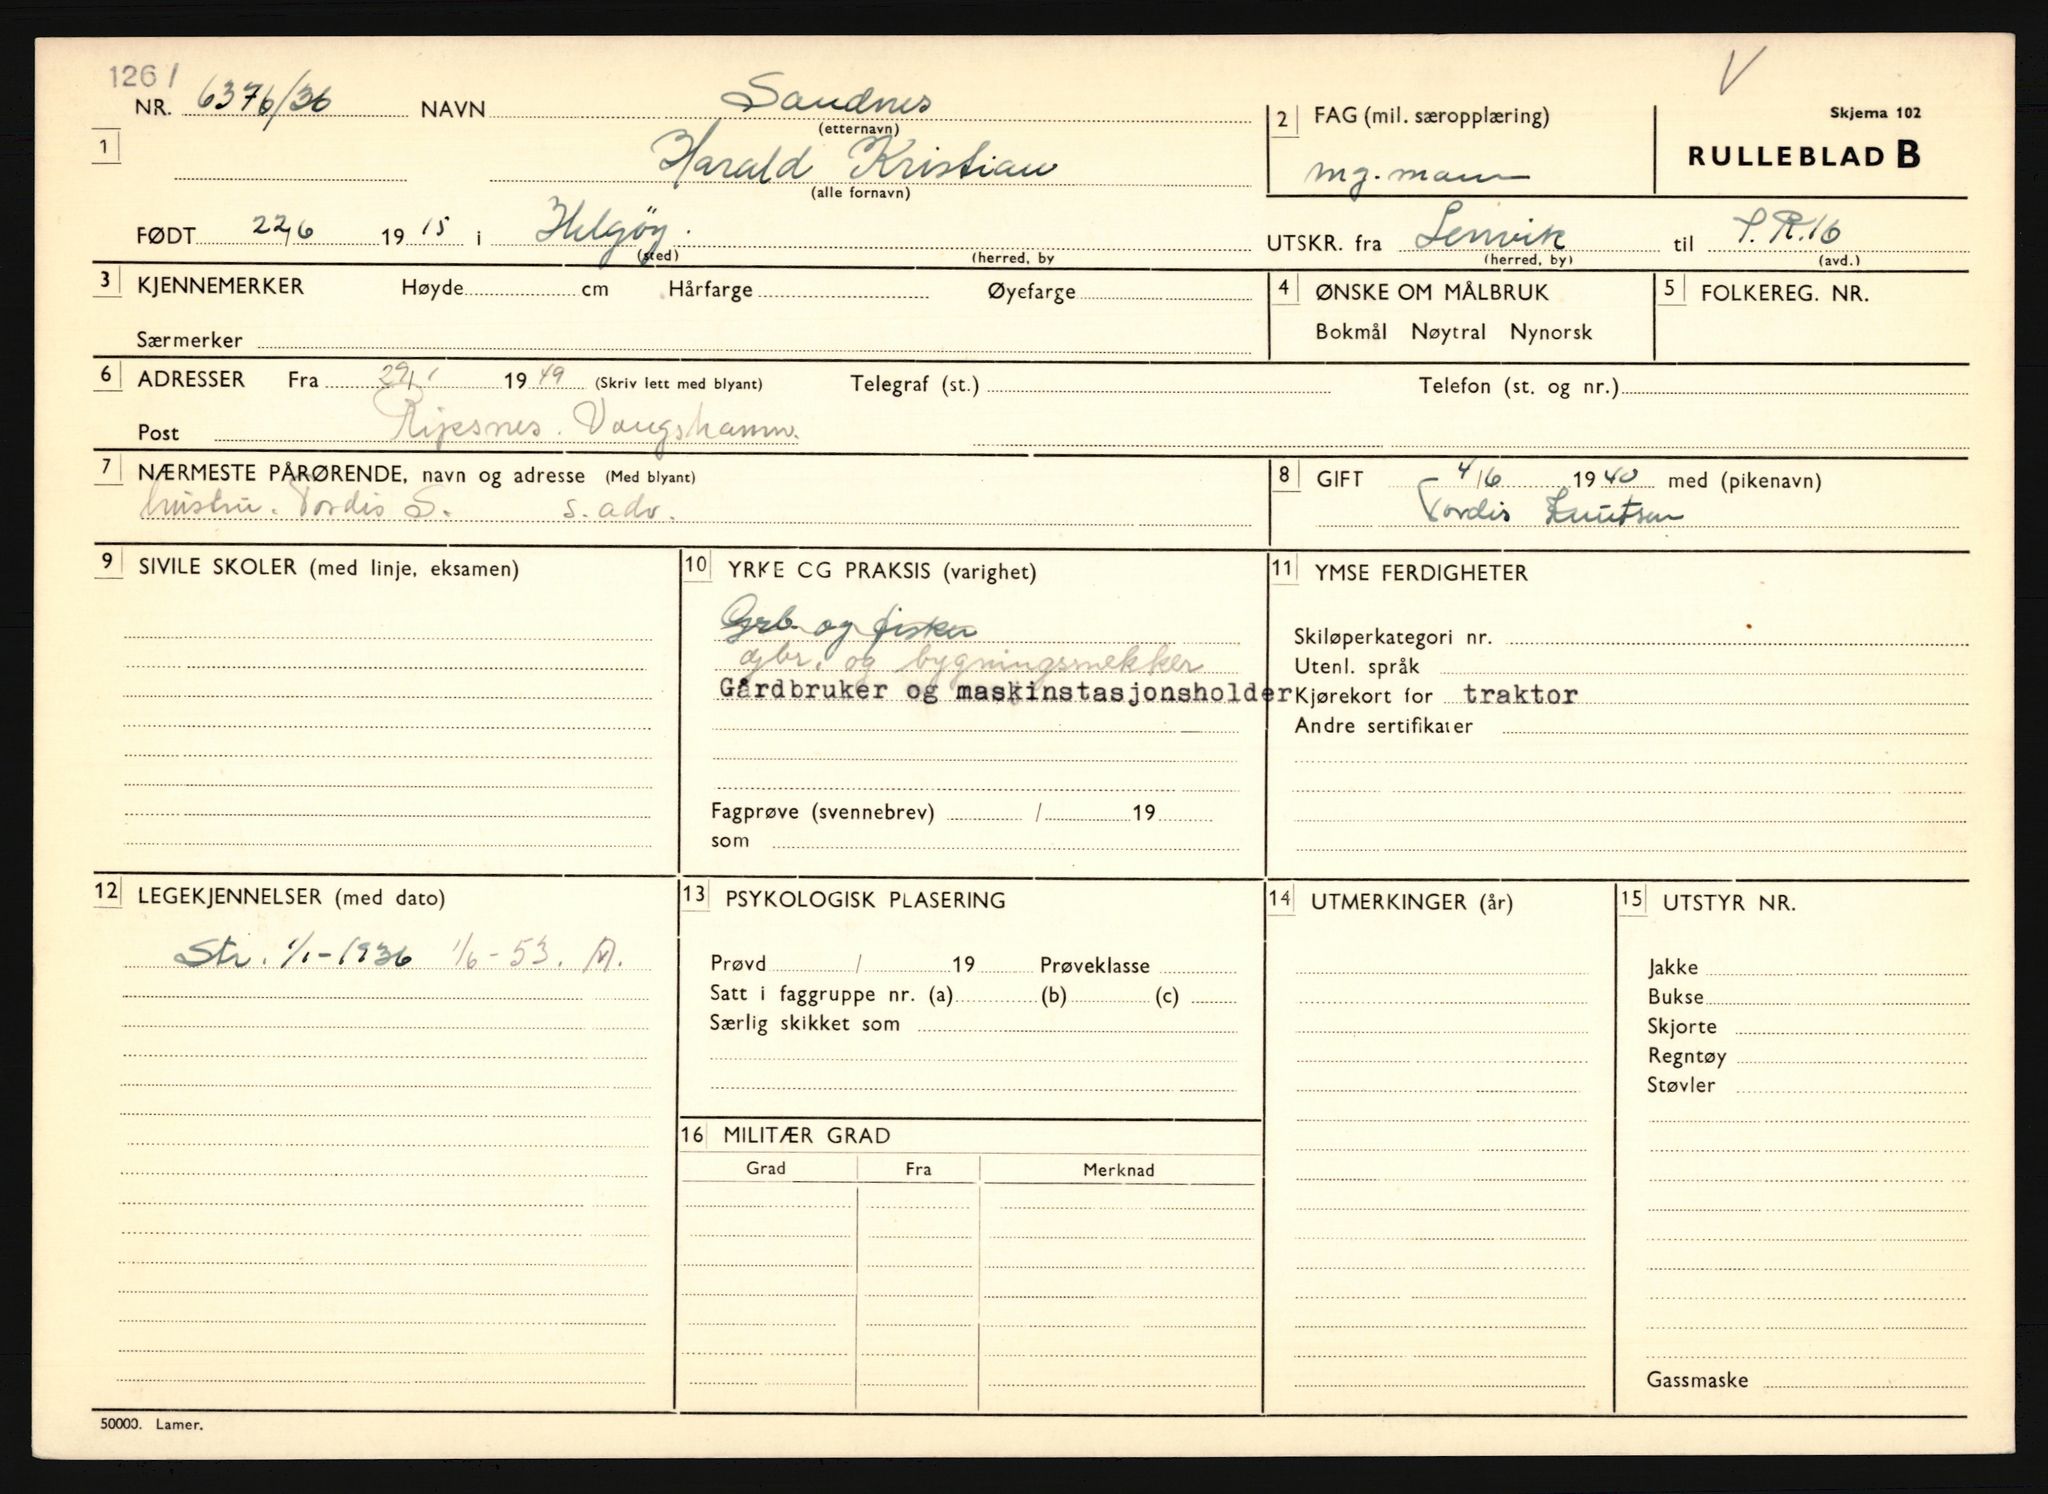 1261
V
NR. 6376/36 NAVN Sandnes
(etternavn)
1 Harald Kristian
(alle fornavn)
2 FAG (mil. særopplæring)
mg. mann
Skjema 102
RULLEBLAD B
FØDT 22/6 1915 i Helgøy.
(sted) (herred, by
UTSKR. fra Lenvik til I.R.16
(herred, by) (avd.)
3 KJENNEMERKER Høyde cm Hårfarge Øyefarge
Særmerker
4 ØNSKE OM MÅLBRUK
Bokmål Nøytral Nynorsk
5 FOLKEREG. NR.
6 ADRESSER Fra 29/1 1949 (Skriv lett med blyant) Telegraf (st.) Telefon (st. og nr.)
Post Vangshamn.
7 NÆRMESTE PÅRØRENDE, navn og adresse (Med blyant)
hustru. Tordis S. s. adr.
8 GIFT 4/6 1940 med (pikenavn)
Tordis Knutsen
9 SIVILE SKOLER (med linje, eksamen)
10 YRKE CG PRAKSIS (varighet)
Grb. og fisker
gbr. og bygningssnekker
Gårdbruker og maskinstasjonsholder
Fagprøve (svennebrev) / 19
som
11 YMSE FERDIGHETER
Skiløperkategori nr.
Utenl. språk
Kjørekort for traktor
Andre sertifikater
12 LEGEKJENNELSER (med dato)
Str. 1/1-1936 1/6-53.
13 PSYKOLOGISK PLASERING
Prøvd / 19 Prøveklasse
Satt i faggruppe nr. (a) (b) (c)
Særlig skikket som
14 UTMERKINGER (år)
15 UTSTYR NR.
Jakke
Bukse
Skjorte
Regntøy
Støvler
Gassmaske
16 MILITÆR GRAD
Grad Fra Merknad
50000. Lamer.